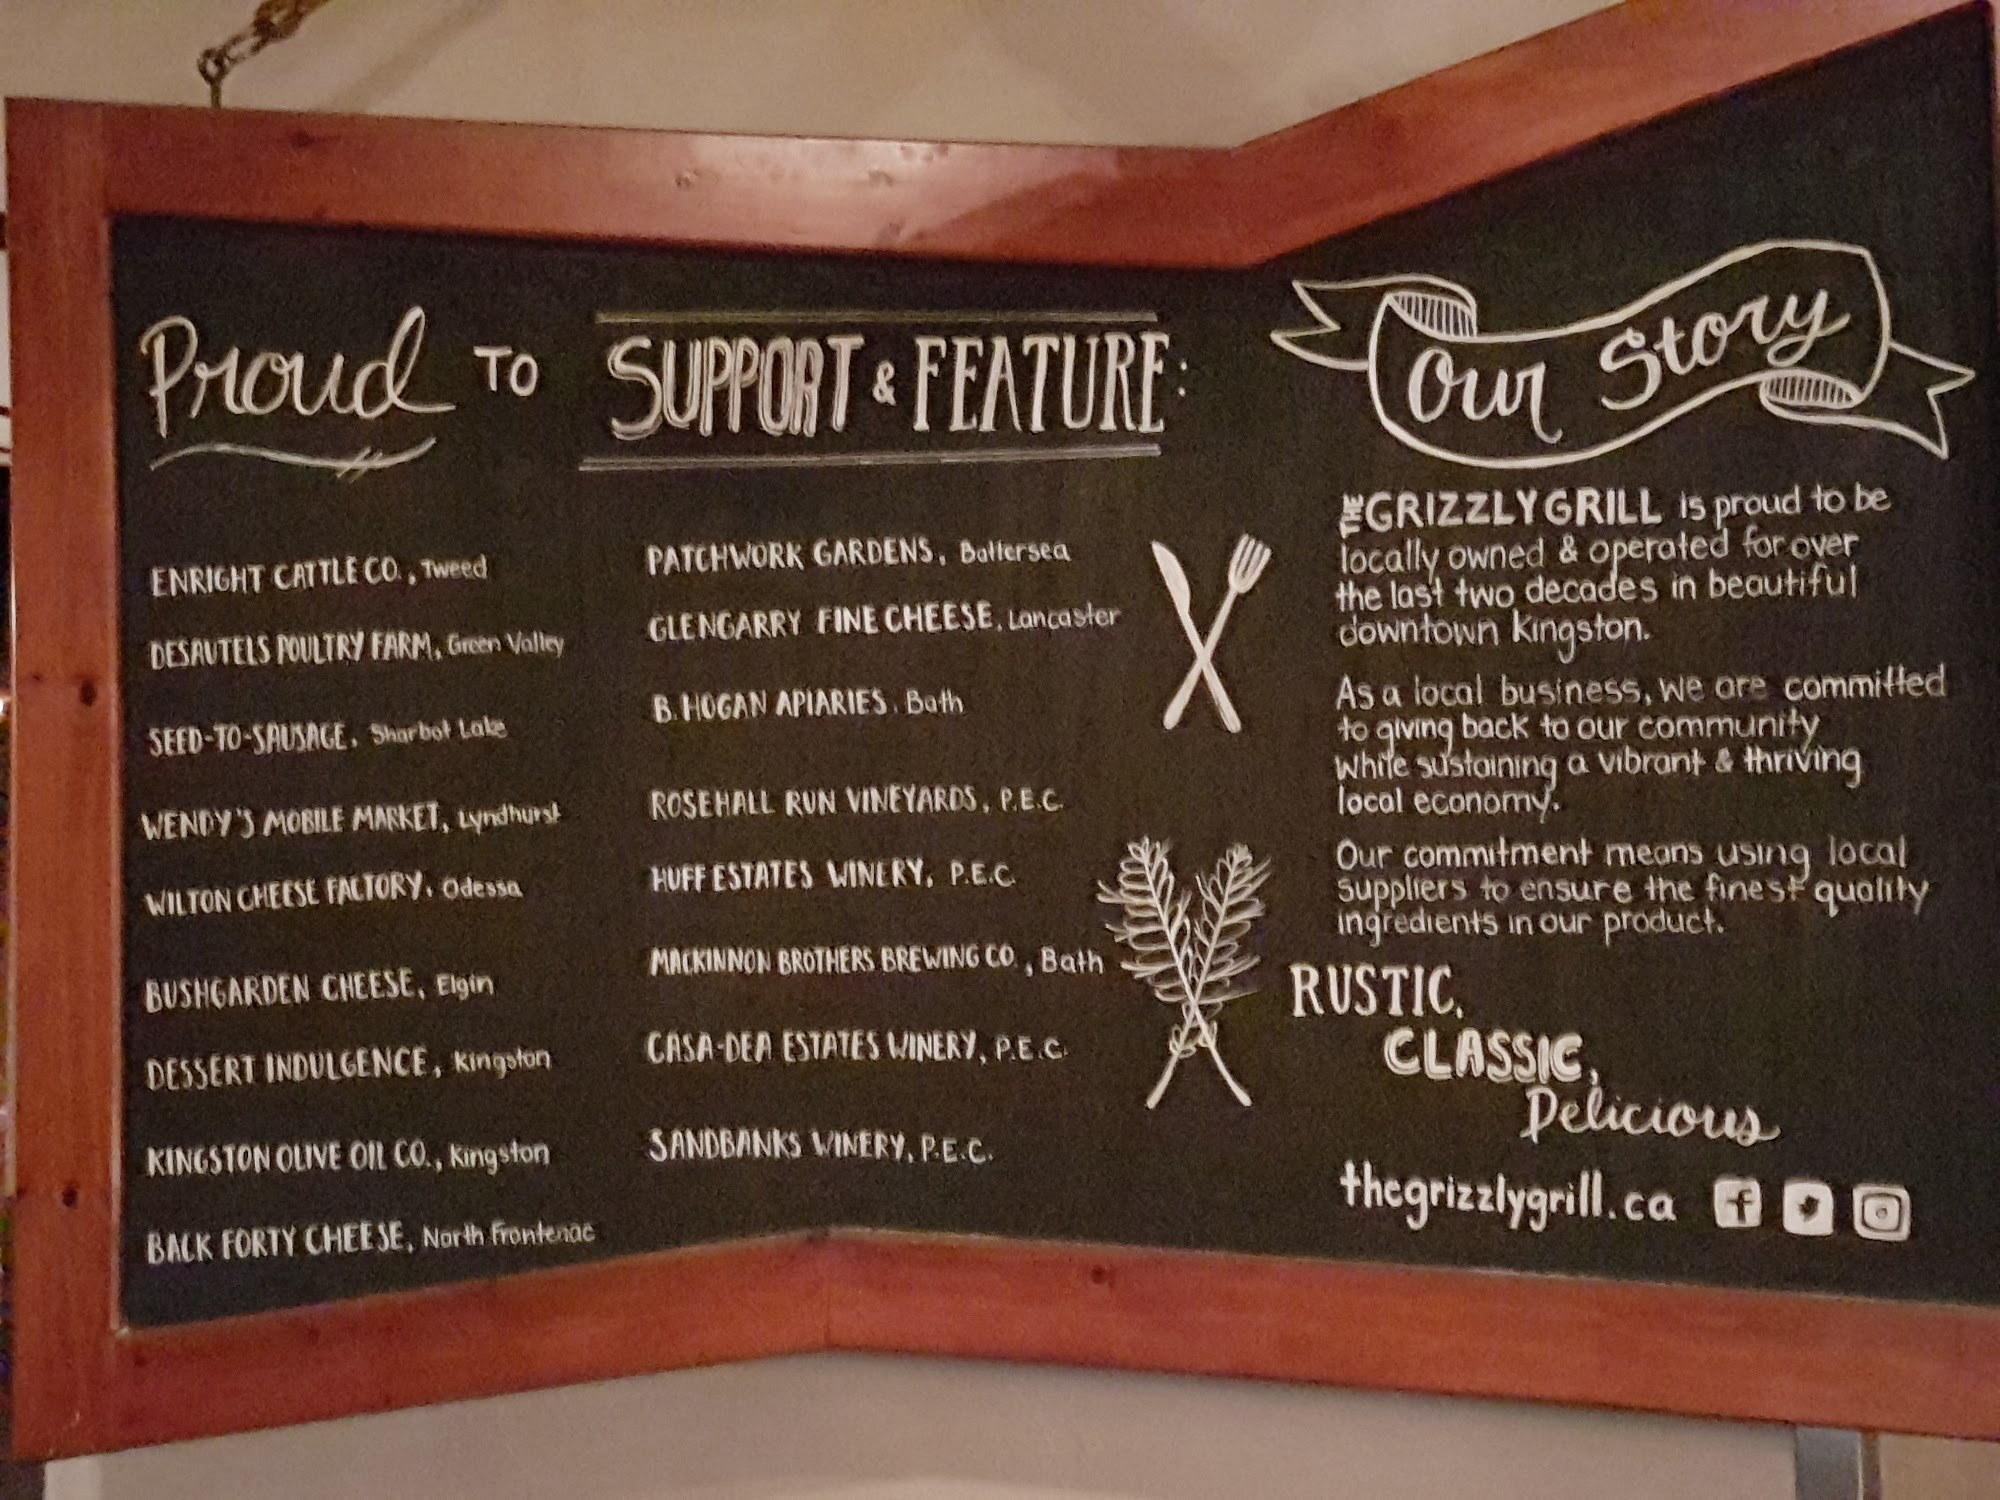 Proud TO SUPPORT & FEATURE:
ENRIGHT CATTLE CO., Tweed
DESAUTELS POULTRY FARM, Green Valley
SEED-TO-SAUSAGE, Sharbot Lake
WENDY'S MOBILE MARKET, Lyndhurst
WILTON CHEESE FACTORY, Odessa
BUSHGARDEN CHEESE, Elgin
DESSERT INDULGENCE, Kingston
KINGSTON OLIVE OIL CO., Kingston
BACK FORTY CHEESE, North Frontenac
PATCHWORK GARDENS, Battersea
GLENGARRY FINE CHEESE, Lancaster
B. HOGAN APIARIES, Bath
ROSEHALL RUN VINEYARDS, P.E.C.
HUFF ESTATES WINERY, P.E.C.
MACKINNON BROTHERS BREWING CO., Bath
CASA-DEA ESTATES WINERY, P.E.C.
SANDBANKS WINERY, P.E.C.
Our Story
THE GRIZZLY GRILL is proud to be
locally owned & operated for over
the last two decades in beautiful
downtown Kingston.
As a local business, we are committed
to giving back to our community
while sustaining a vibrant & thriving
local economy.
Our commitment means using local
suppliers to ensure the finest quality
ingredients in our product.
RUSTIC,
CLASSIC,
Delicious
thegrizzlygrill.ca